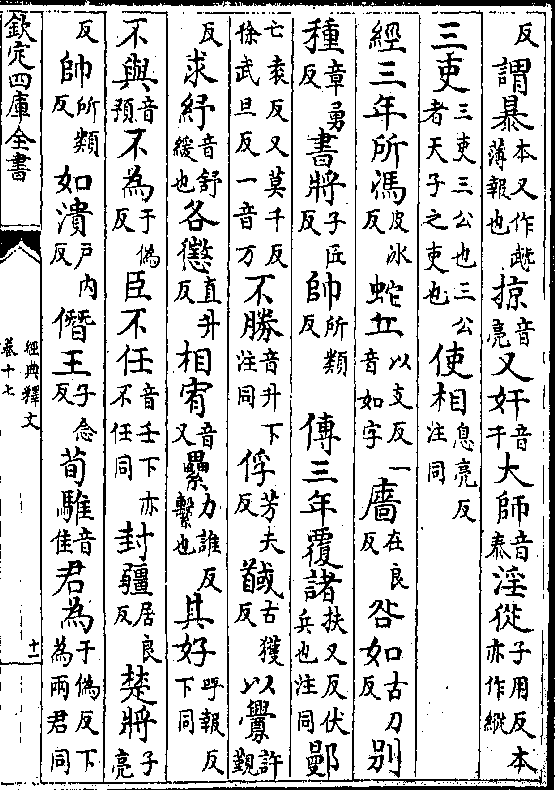 反謂暴本又作虣薄報也掠音亮又奸音干大師音泰淫從子用反本亦作縱
三吏三吏三公也三公者天子之吏也使相息亮反注同
經三年所馮皮冰反蛇丘以支反一音如字廧在良反咎如古刀反别
種章勇反書將子匠反帥所類反傳三年覆諸扶又反伏兵也注同鄤
亡袁反又莫千反徐武旦反一音万不勝音升下注同俘芳夫反馘古獲反以釁許覲
反求紓音舒緩也各懲直升反相宥音又纍力誰反繫也其好呼報反下同
不與音預不為于偽反臣不任音壬下亦不任同封疆居良反楚將子亮
反帥所類反如潰戶内反僭王子念反荀騅音隹君為于偽反下為兩君同
欽定四庫全書
經典釋文
卷十七
十一